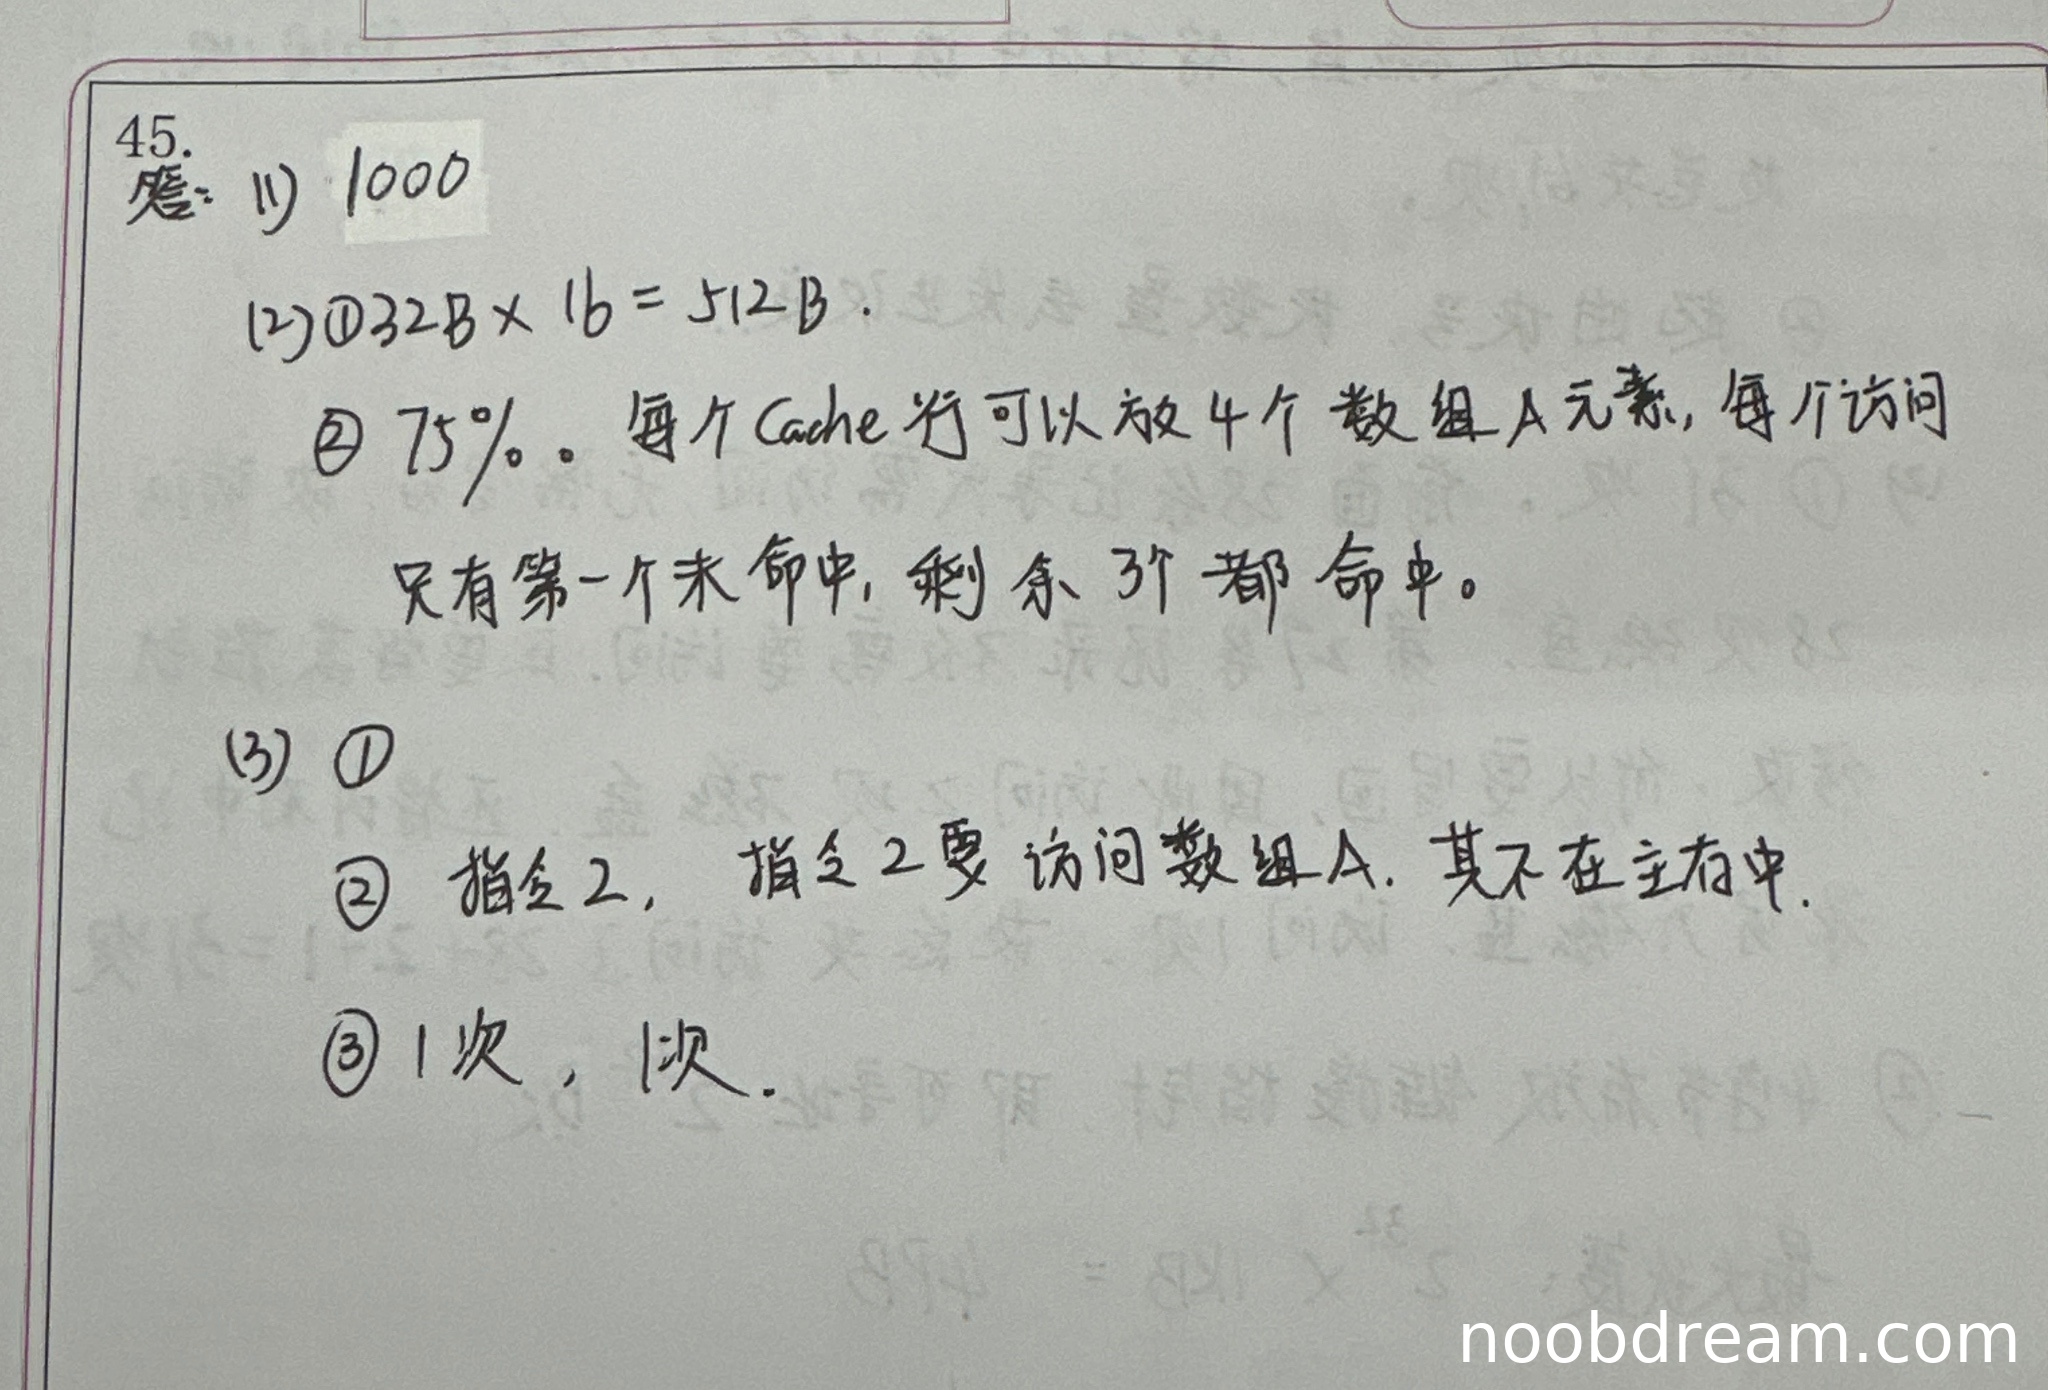 45.
答: (1) 1000
(2) ① 32B × 16 = 512B.
② 75%。每个Cache行可以放4个数组A元素, 每个访问
只有第一个未命中, 剩余3个都命中。
(3) ①
② 指令2, 指令2要访问数组A. 其不在主存中.
③ 1次, 1次.
noobdream.com